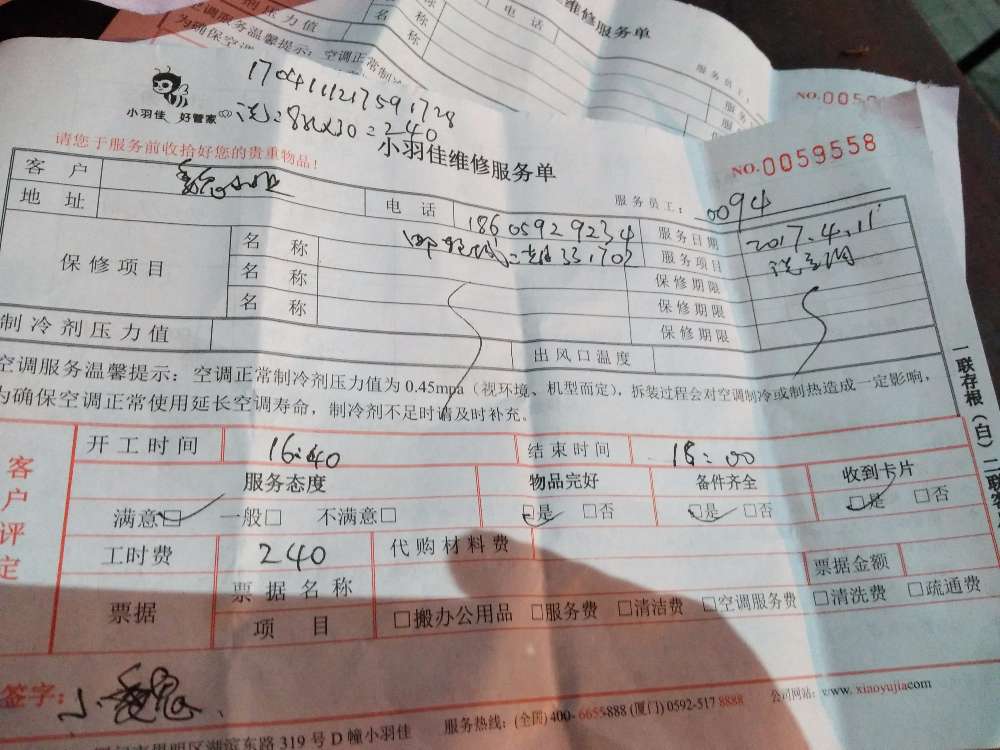 电 话
维修服务单
称
称
称
剂压力值
空调服务温馨提示：空调正常制冷
为确保空调
服务员工：
服务
服务
NO.005
1704111217591728
小羽佳 好管家
洗：8台X30=240
小羽佳维修服务单
NO.0059558
请您于服务前收拾好您的贵重物品！
服务员工：0094
客 户
电 话 18605929234
服务日期 2017.4.11
地 址
服务项目 洗空调
保修项目
名 称
保修期限
名 称
保修期限
名 称
保修期限
制冷剂压力值
出风口温度
空调服务温馨提示：空调正常制冷剂压力值为0.45mpa（视环境、机型而定），拆装过程会对空调制冷或制热造成一定影响，
为确保空调正常使用延长空调寿命，制冷剂不足时请及时补充。
一联存根（白）二联客
客户评定
开工时间 16:40 结束时间 18:00
服务态度 物品完好 备件齐全 收到卡片
满意□ 一般□ 不满意□ □是 □否 □是 □否 □是 □否
工时费 240 代购材料费
票据 票据名称 票据金额
项 目 □搬办公用品 □服务费 □清洁费 □空调服务费 □清洗费 □疏通费
签字：小魏
湖滨东路319号D幢小羽佳 服务热线：(全国)400-6655888 (厦门)0592-5178888 公司网站：www.xiaoyujia.com